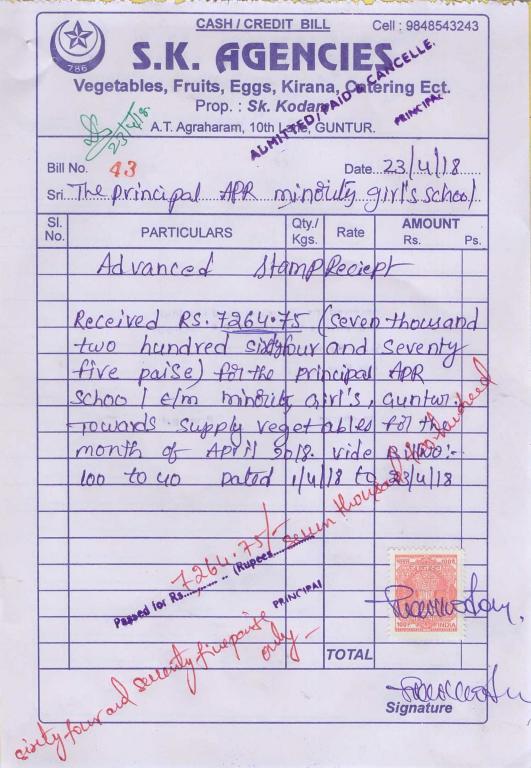 CASH / CREDIT BILL
Cell : 9848543243
786
S.K. AGENCIES
Vegetables, Fruits, Eggs, Kirana, Catering Ect.
Prop. : Sk. Kodam
A.T. Agraharam, 10th Lane, GUNTUR.
ADMITTED/PAID & CANCELLE.
PRINCIPAL
23/4/18.
Bill No. 43
Date 23/4/18
Sri. The principal APR minority girl's school
Sl. No.
PARTICULARS
Qty./ Kgs.
Rate
AMOUNT
Rs. Ps.
Advanced Stamp Reciept
Received RS. 7264.75 (seven thousand
two hundred sixty four and seventy
five paise) for the principal APR
School E/m minority girl's, Guntur.
Towards supply vegetables for the
month of April 2018. vide B.NO:-
100 to 40 Dated 1/4/18 to 23/4/18
Passed for Rs. 7264.75/- (Rupees seven thousand two hundred
sixty four and seventy five paise
only -
PRINCIPAL
INDIA
TOTAL
Signature